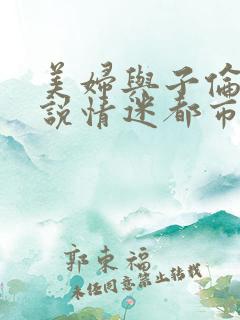 美婦與子倫
說情迷都市
郭東福
未经同意禁止转载